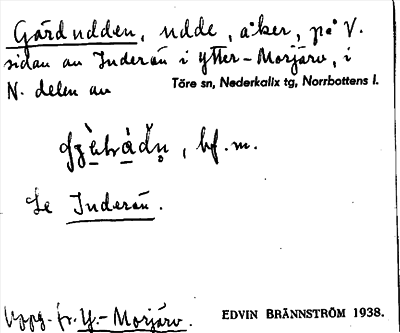 Gårdudden, udde, åker, på V.
sidan av Inderån i Ytter-Morjärv, i
N. delen av Töre sn, Nederkalix tg, Norrbottens l.
, bf. m.
Se Inderån.
Uppg. fr. Y.-Morjärv. EDVIN BRÄNNSTRÖM 1938.